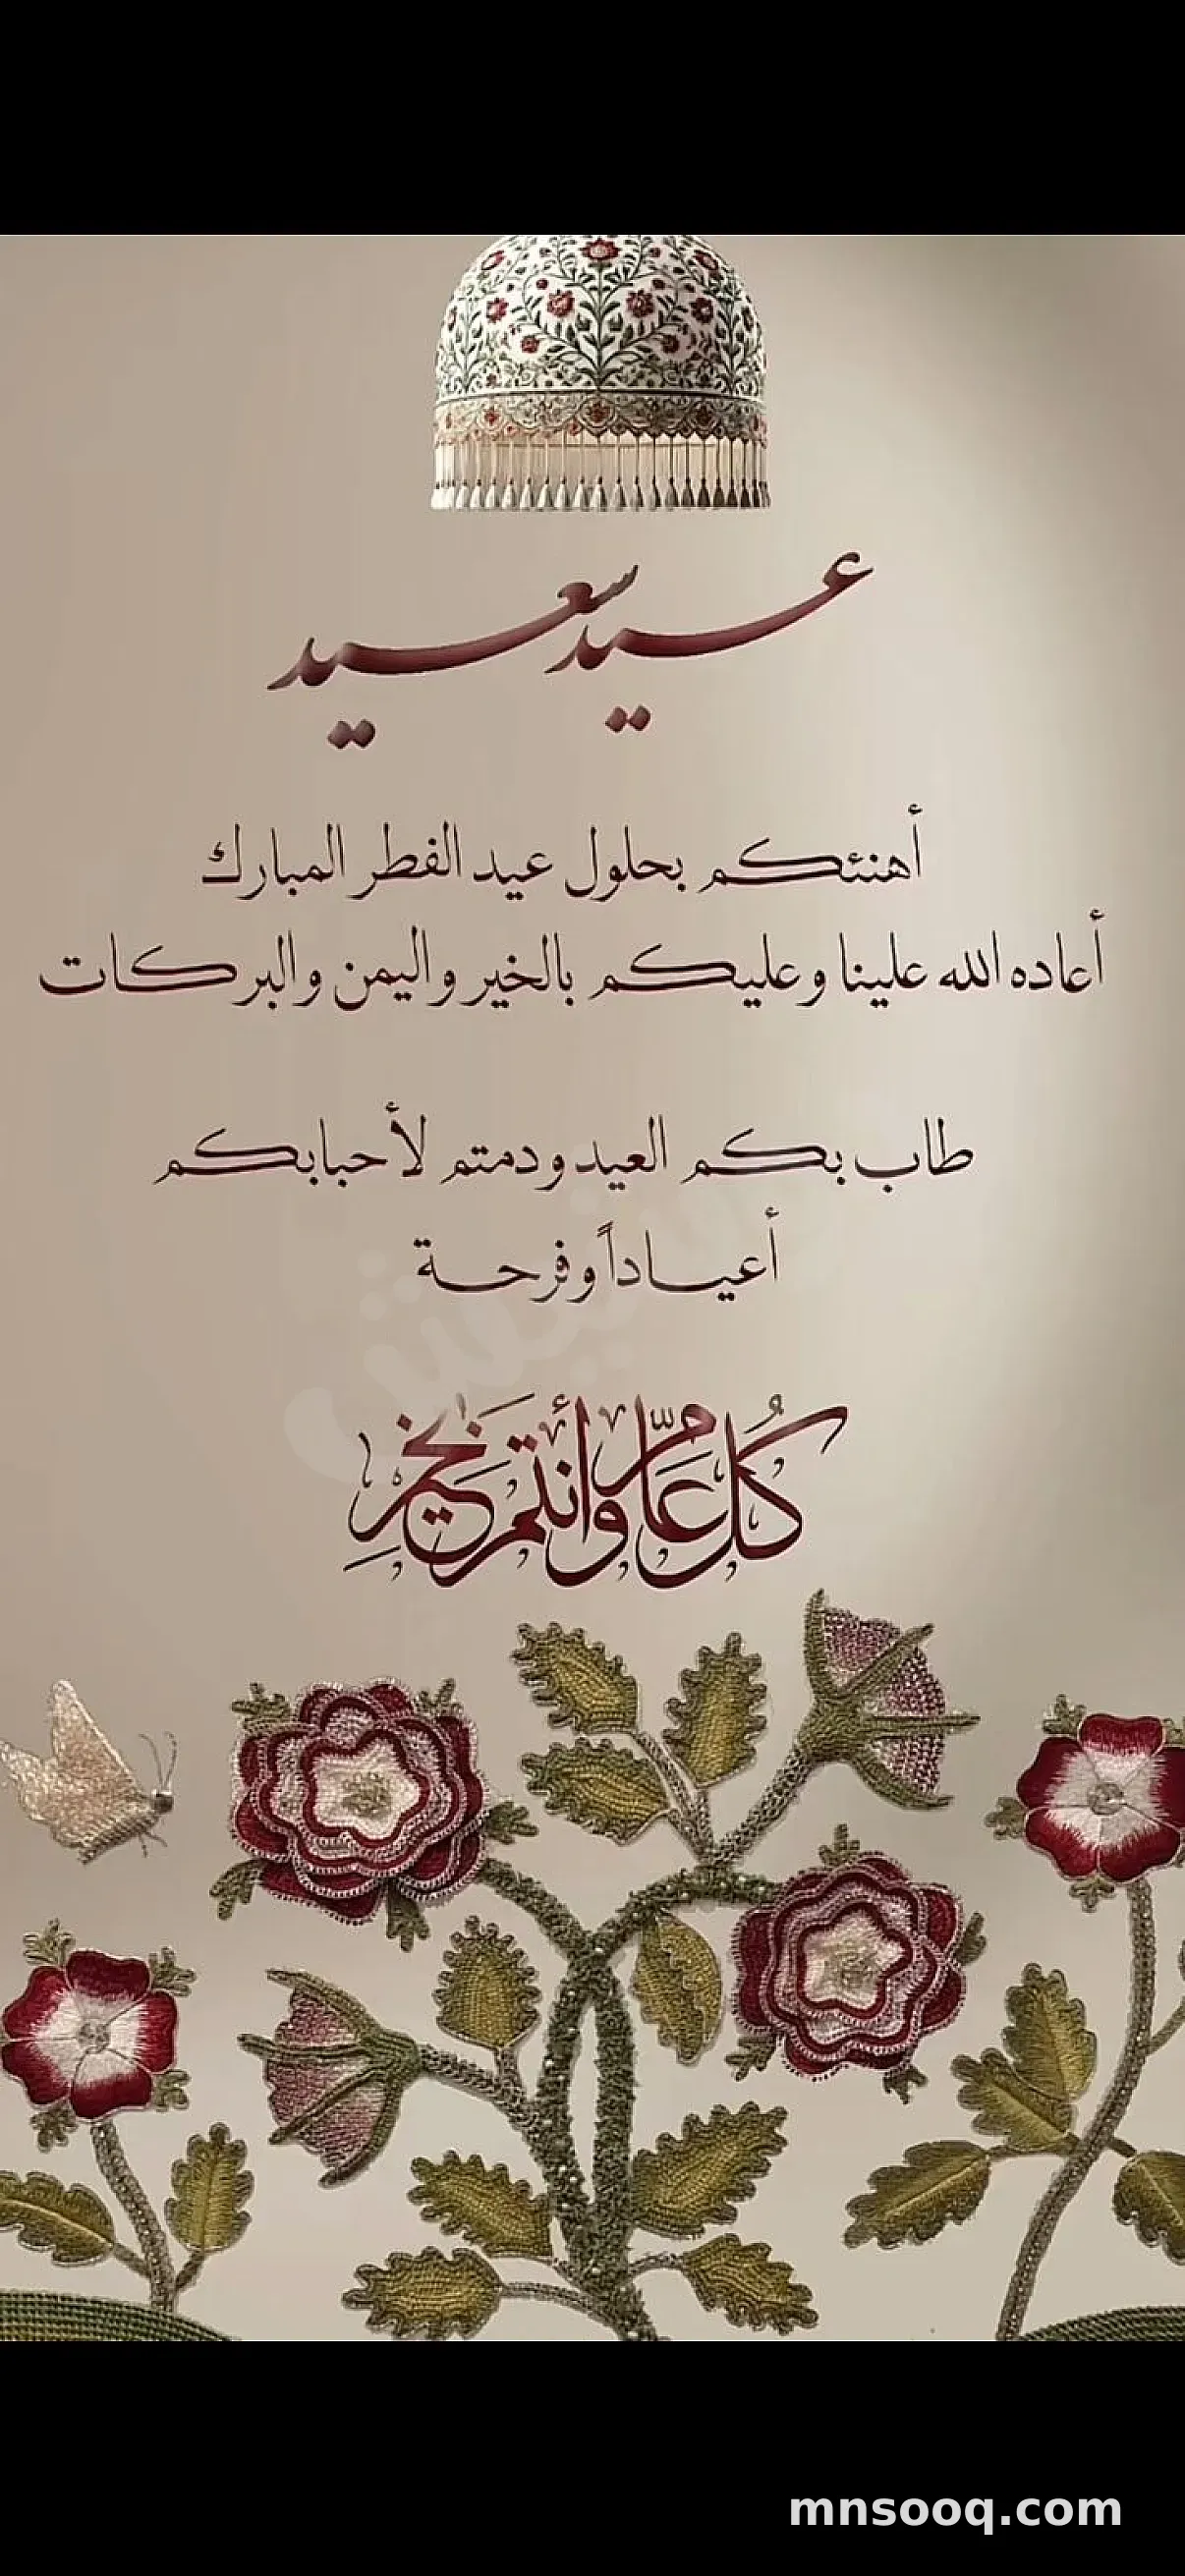 عيد سعيد
أهنئكم بحلول عيد الفطر المبارك
أعاده الله علينا وعليكم بالخير واليمن والبركات
طاب بكم العيد ودمتم لأحبابكم
أعياداً وفرحة
كُل عام وأنتم بخير
mnsooq.com